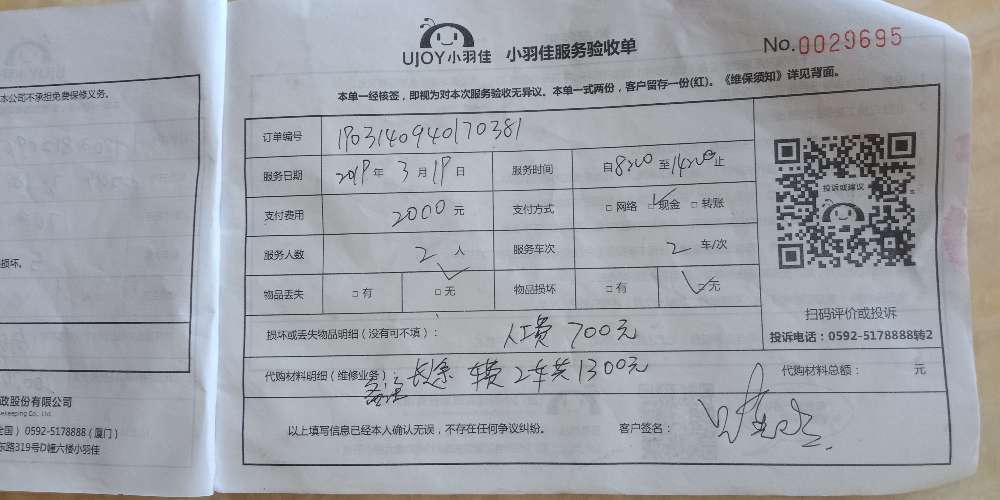 本公司不承担免费保修义务。
损坏。
政股份有限公司
ekeeping Co., Ltd.
全国） 0592-5178888（厦门）
东路319号D幢六楼小羽佳
UJOY小羽佳 小羽佳服务验收单
No.0029695
本单一经核签，即视为对本次服务验收无异议。本单一式两份，客户留存一份(红)。《维保须知》详见背面。
订单编号 1903140940170381
服务日期 2019年 3月19日 服务时间 自8:00至14:00止
支付费用 2000元 支付方式 □网络 □现金 □转账
服务人数 2人 服务车次 2车/次
物品丢失 □有 □无 物品损坏 □有 □无
投诉或建议
扫码评价或投诉
投诉电话：0592-5178888转2
损坏或丢失物品明细（没有可不填）： 人工费 700元
代购材料明细（维修业务）： 长途 车费 2车共1300元 代购材料总额： 元
备注
以上填写信息已经本人确认无误，不存在任何争议纠纷。 客户签名：